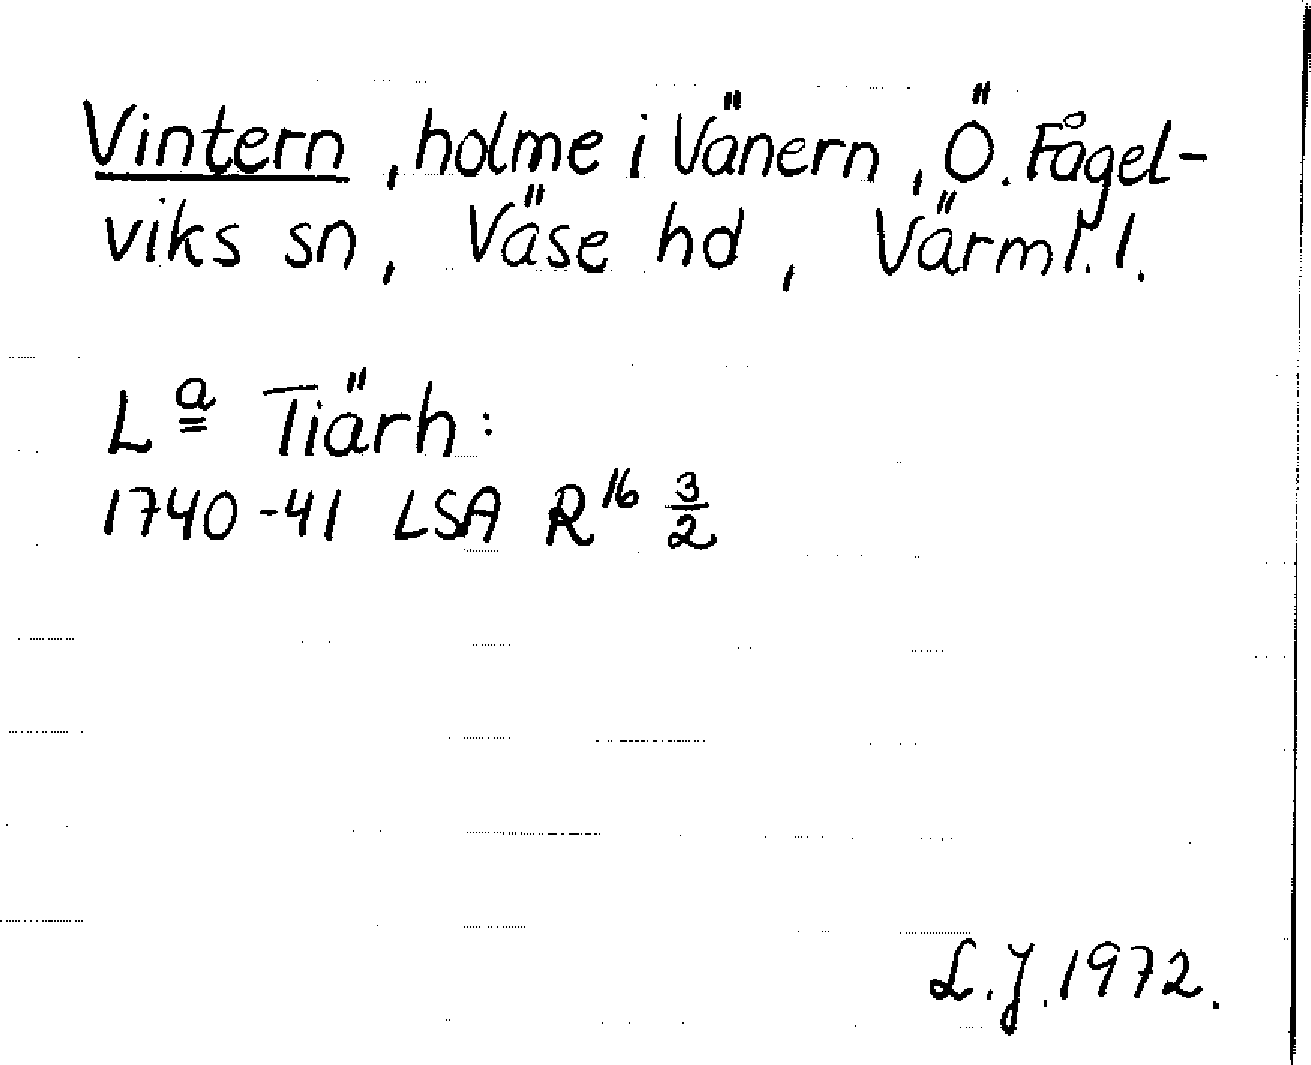 Vintern, holme i Vänern, Ö. Fågel-
viks sn, Väse hd, Värml. l.
Lª Tiärh:
1740-41 LSA R¹⁶ 3/2
L.J. 1972.